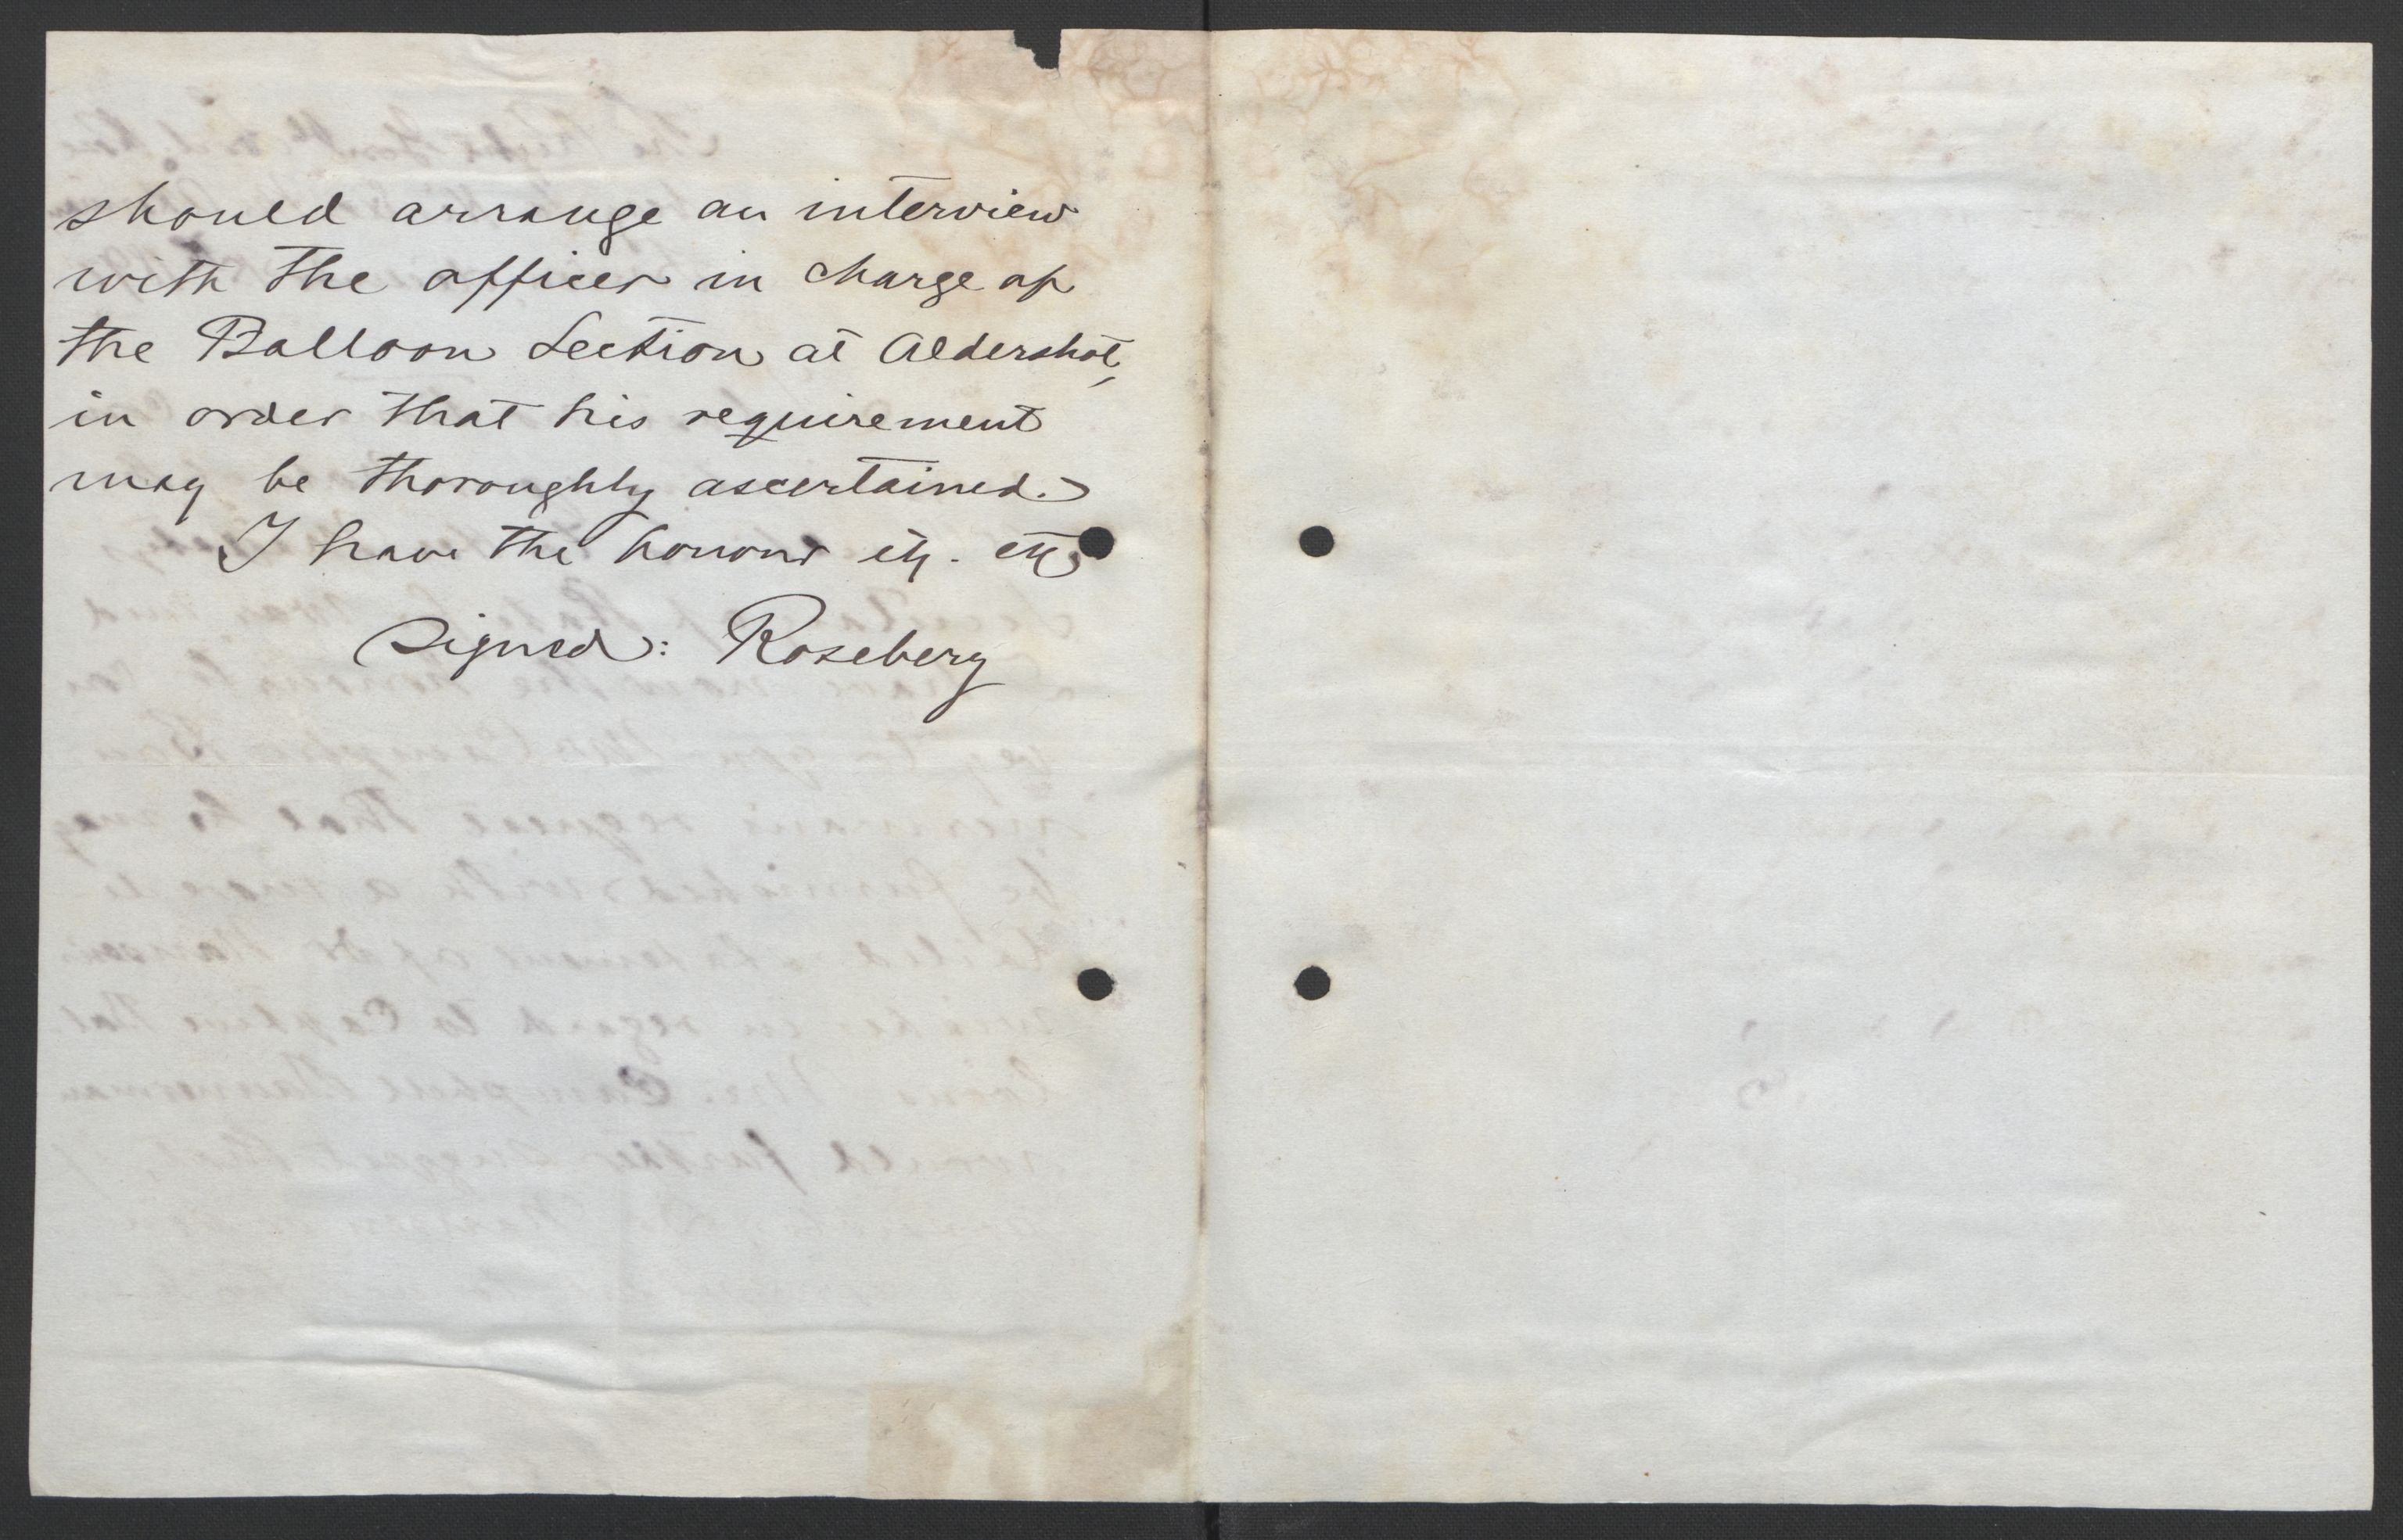 should arrange an interview
with the officer in charge of
the Balloon Section at Aldershot,
in order that his requirement
may be thoroughly ascertained.
I have the honour etc. etc
signed: Rosebery